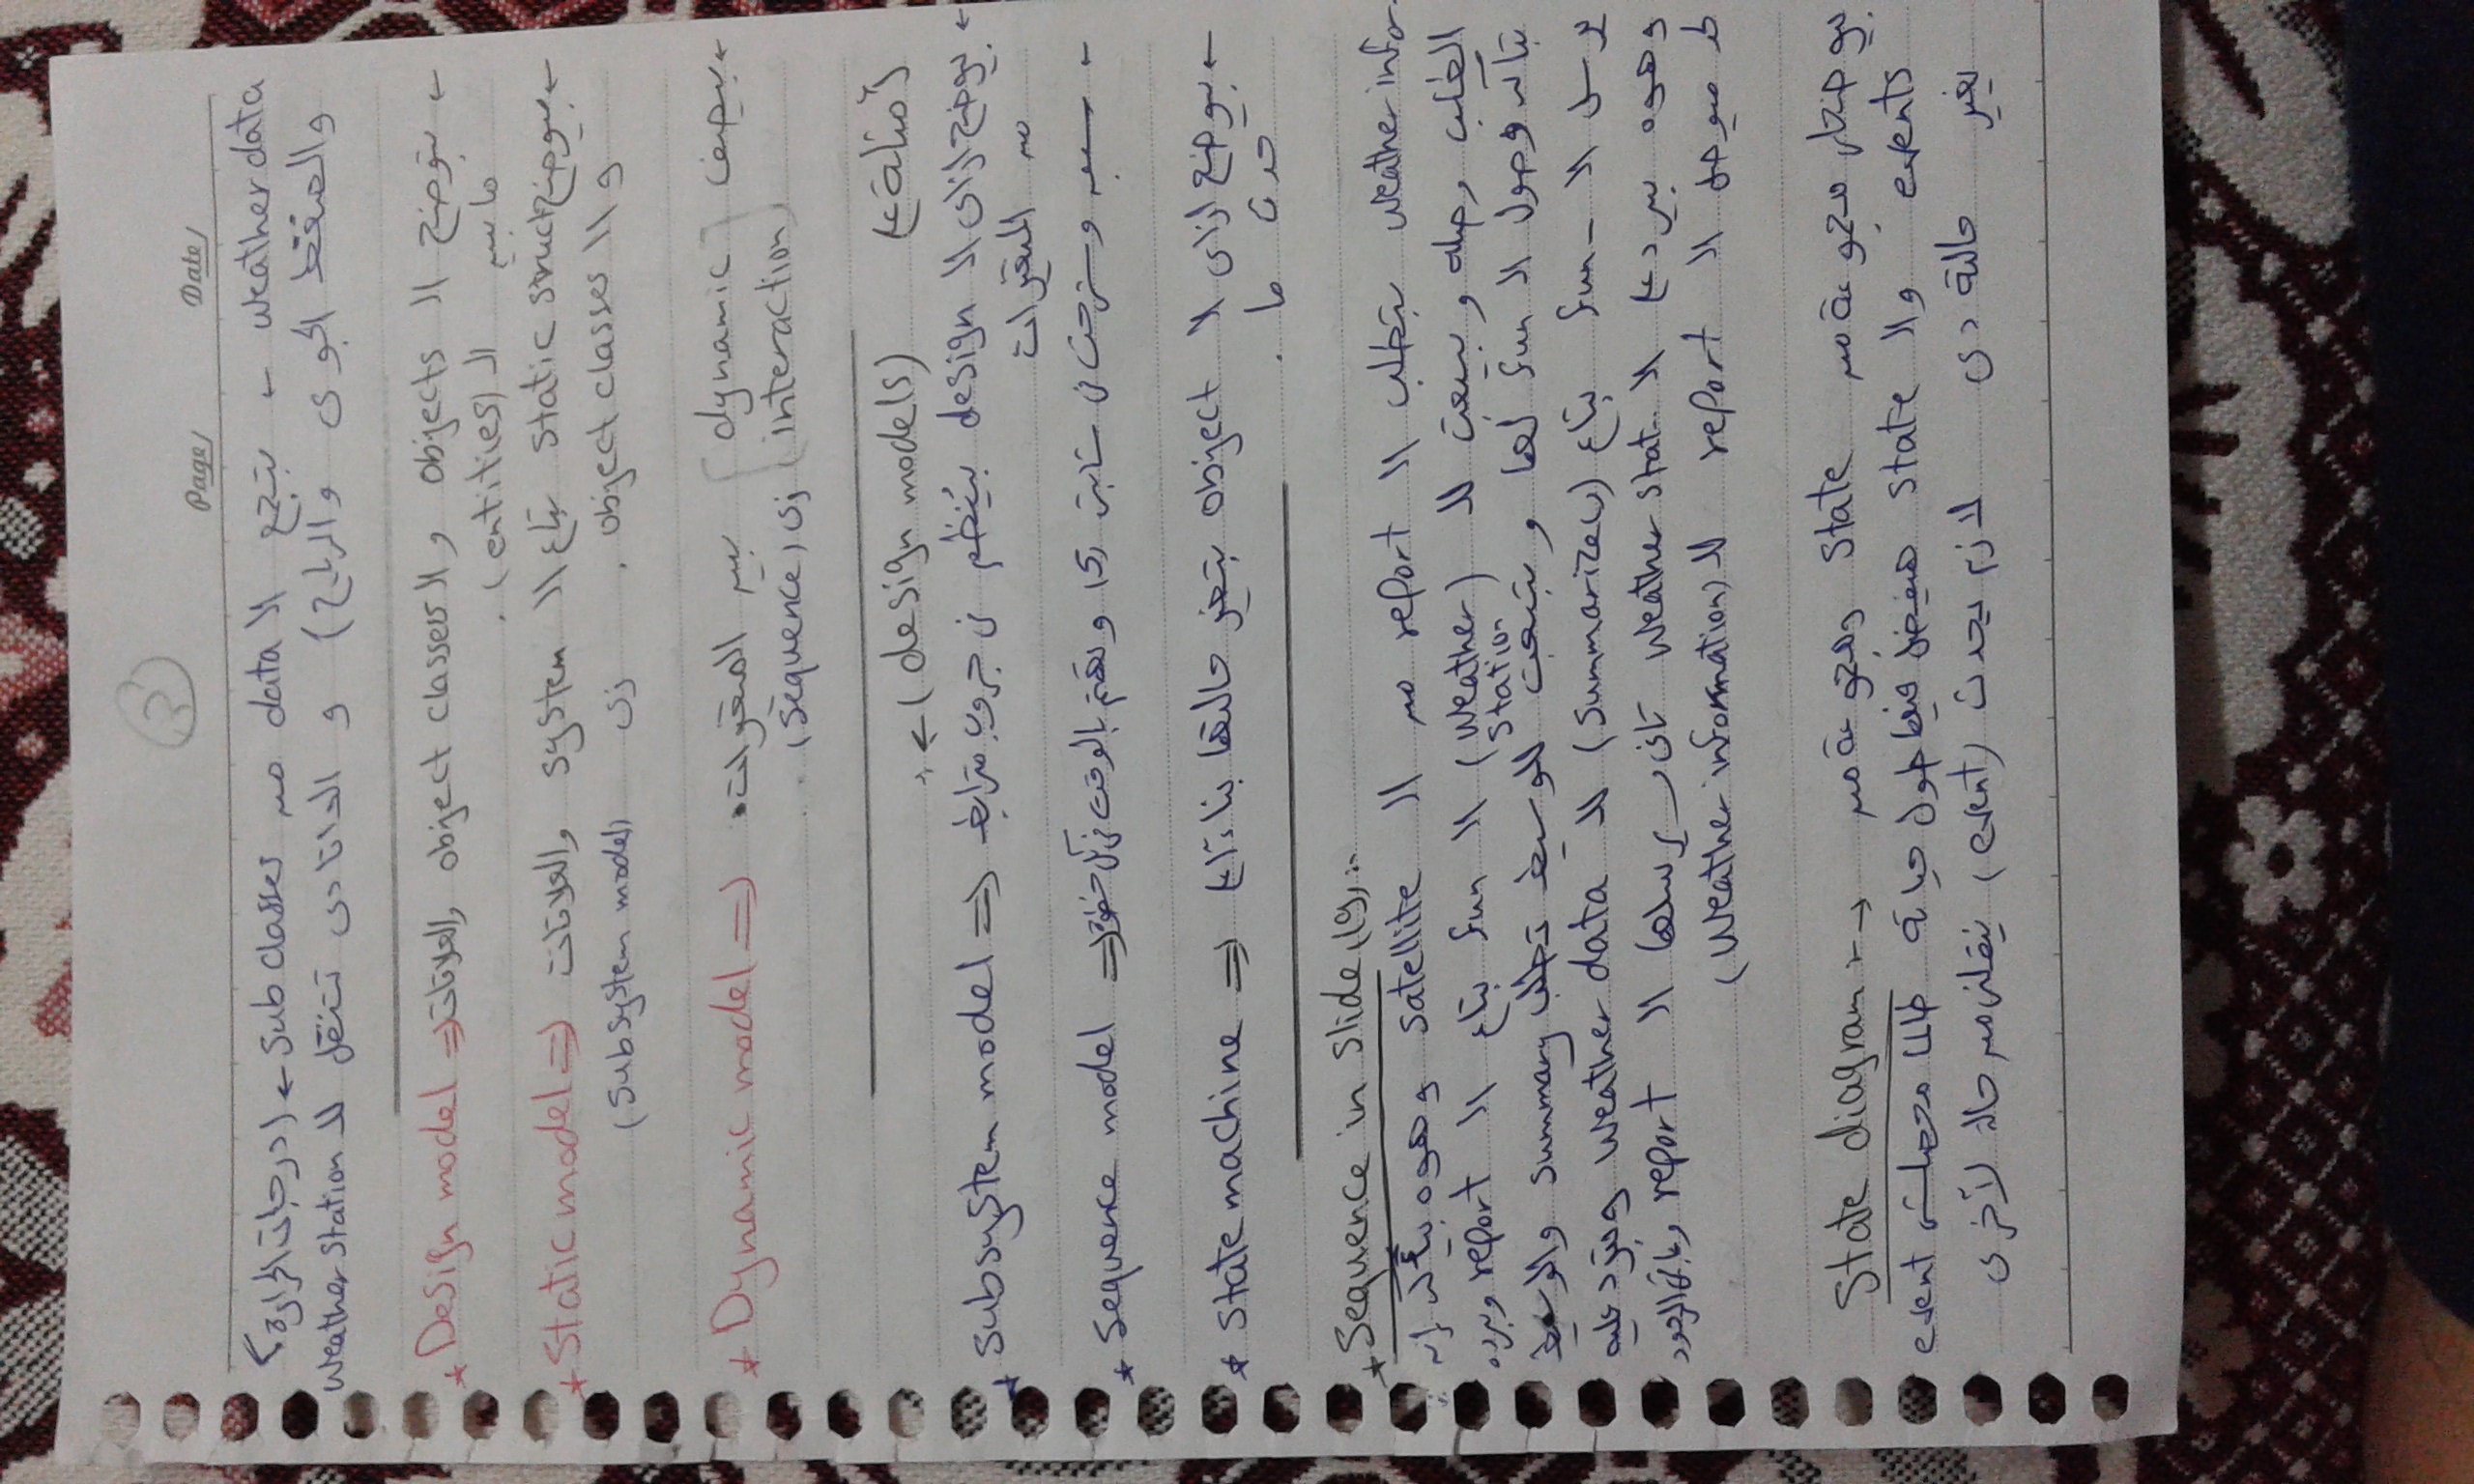 3
Page/ Date/
weather data ← بتجمع الـ data من sub classes ← (درجات الحرارة
والضغط الجوى والرياح) و الداتا دى تتنقل للـ Weather Station
* Design model => ← بتوضح الـ objects و الـ object classes والعلاقات
ما بين الـ (entities).
* Static model => ← بيوضح static struct بتاع الـ system والعلاقات
و الـ object classes. زى (subsystem model)
* Dynamic model => ← بيصف dynamic بين المتغيرات.
interaction زى (sequence)
أمثلة على (design models) ←
* subsystem model => ← بيوضح ازاى الـ design بيُنظم فى جروب مترابط
من المتغيرات
* Sequence model => ← وشرحت فى شابتر و تهتم بالوقت فى كل خطوة
* State machine => ← بيوضح ازاى الـ object بتغير حالتها بناءً على
حدث ما.
* Sequence in Slide (19):
Weather infor. بتطلب الـ report من الـ satellite وهوه بيأكد إن
الطلب وصله و بيبعت للـ (Weather Station) الـ fun بتاع الـ report وبرده
بتأكد وصول الـ fun لها و بتبعت للوسيط تطلب summary والوسيط
يرسل الـ fun بتاع (summarize()) للـ weather data وبترد عليه
وهوه بيرد على الـ Weather stat. تانى ويرسلها الـ report وباقى الردود
لحد ميوصل الـ report للـ (Weather information)
State diagram :- → بيوضح مجموعة من State ومجموعة من
events والـ state هيفضل فيها طول حياته طالما محصلش event
يغير حالته دى لازم يحدث (event) ينقلنى من حالة لأخرى